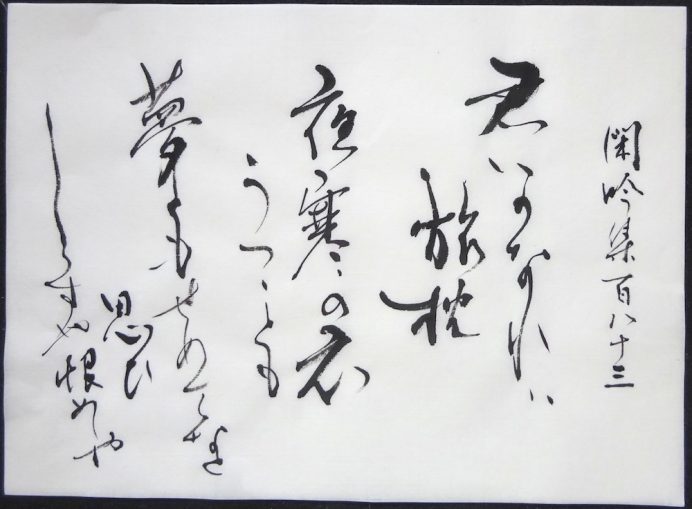 閑吟集百八十三
君いかなれハ
旅枕
夜寒の衣
うつゝとも
夢ともせめてなと
思ひ
しらすや恨めしや